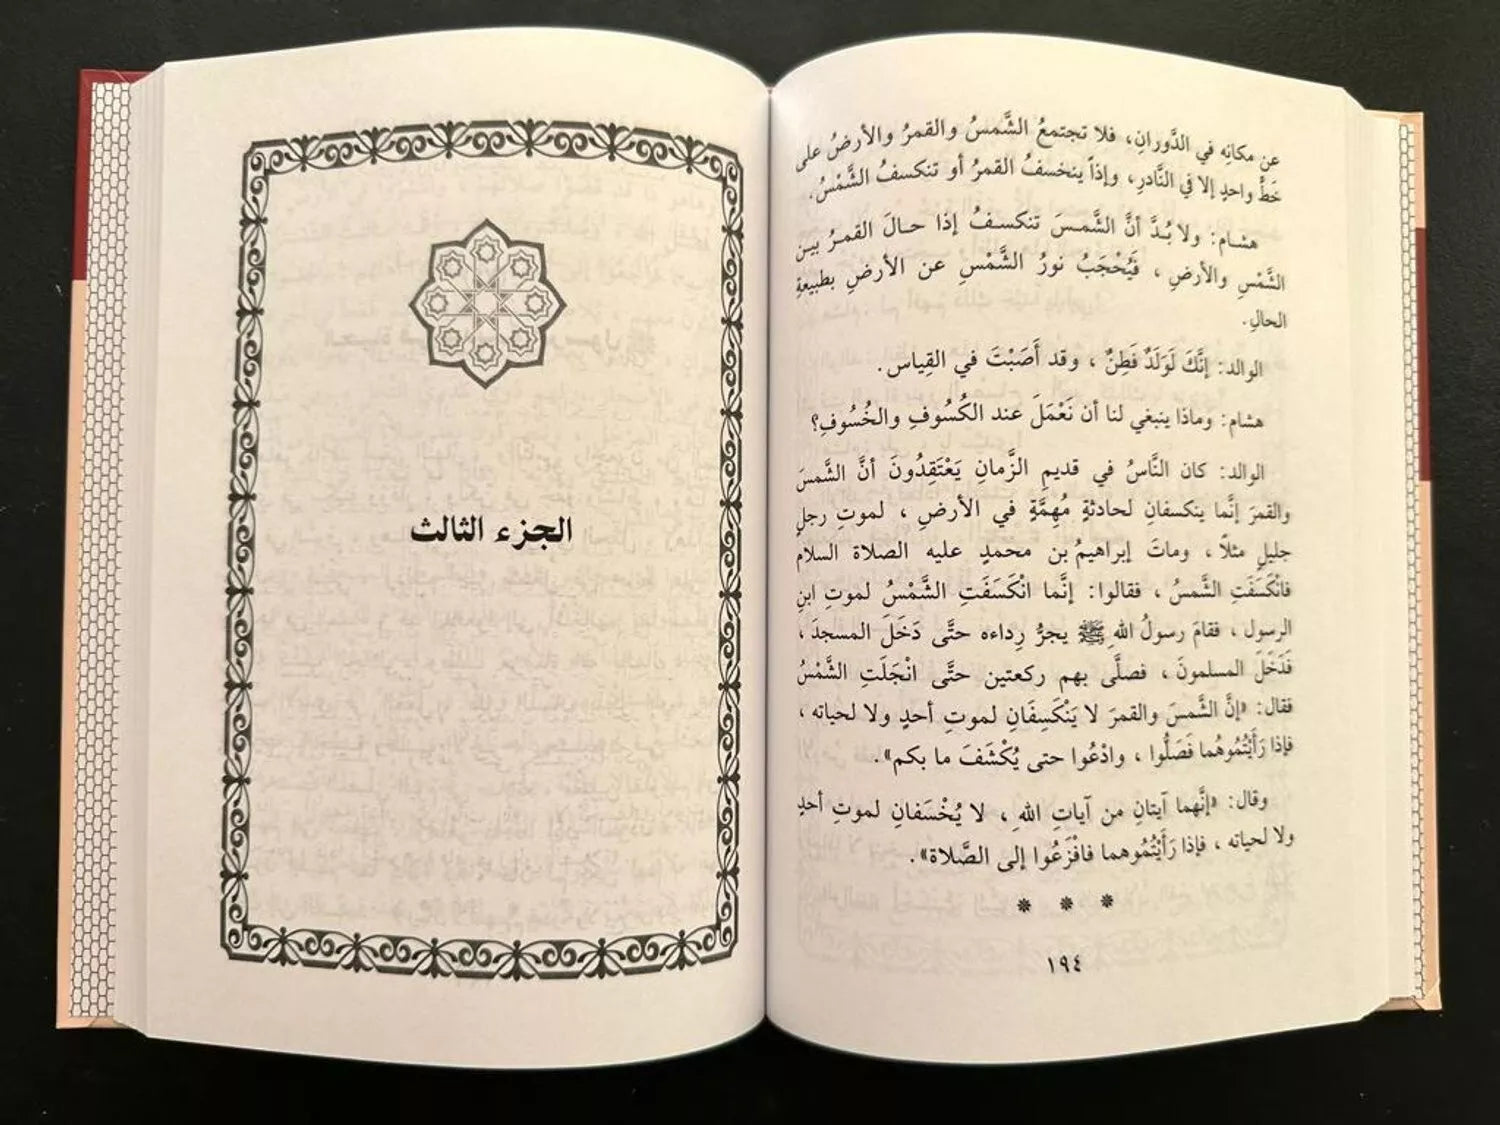 عن مكانِه في الدَّورانِ، فلا تجتمعُ الشَّمسُ والقمرُ والأرضُ على
خَطٍّ واحدٍ إلا في النَّادرِ، وإذاً ينخسفُ القمرُ أو تنكسفُ الشَّمْسُ.
هشـام: ولا بُـدَّ أنَّ الشَّمـسَ تنكسـفُ إذا حـالَ القمـرُ بيـن
الشَّمْسِ والأرضِ ، فَيُحْجَبُ نورُ الشَّمْسِ عن الأرضِ بطبيعةِ
الحالِ.
الوالد: إنَّكَ لَوَلَدٌ فَطِنٌ ، وقد أَصَبْتَ في القِياس.
هشام: وماذا ينبغي لنا أن نَعْمَلَ عند الكُسُوفِ والخُسُوفِ؟
الوالد: كان النَّاسُ في قديمِ الزَّمانِ يَعْتَقِدُونَ أنَّ الشَّمسَ
والقمرَ إنَّما ينكسفانِ لحادثةٍ مُهِمَّةٍ في الأرضِ ، لموتِ رجلٍ
جليلٍ مثلاً ، وماتَ إبراهيمُ بن محمدٍ عليه الصلاة السلام
فانْكَسَفَتِ الشَّمْسُ ، فقالوا: إنَّما انْكَسَفَتِ الشَّمْسُ لموتِ ابنِ
الرسول ، فقامَ رسولُ اللهِ ﷺ يجرُّ رِداءه حتَّى دَخَلَ المسجدَ ،
فَدَخَلَ المسلمونَ ، فصلَّى بهم ركعتين حتَّى انْجَلَتِ الشَّمْسُ
فقال: «إنَّ الشَّمسَ والقمرَ لا يَنْكَسِفَانِ لموتِ أحدٍ ولا لحياته ،
فإذا رَأَيْتُمُوهُما فَصَلُّوا ، وادْعُوا حتى يُكْشَفَ ما بكم».
وقال: «إنَّهما آيتانِ من آياتِ اللهِ ، لا يُخْسَفانِ لموتِ أحدٍ
ولا لحياته ، فإذا رَأَيْتُموهما فافْزَعُوا إلى الصَّلاة».
* * *
١٩٤
الجزء الثالث